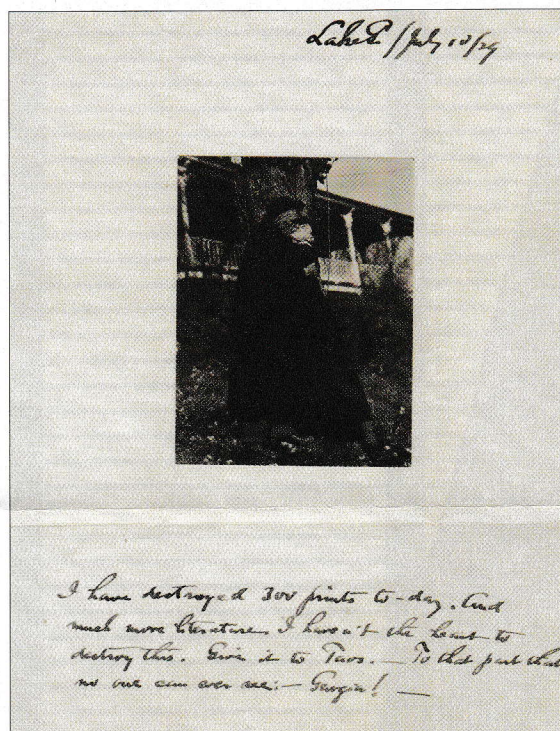 Lake G/July 10/29
I have destroyed 300 prints to-day. And
much more literature. I haven't the heart to
destroy this. Give it to Taos. — To that part that
no one can ever see: — Georgia! —